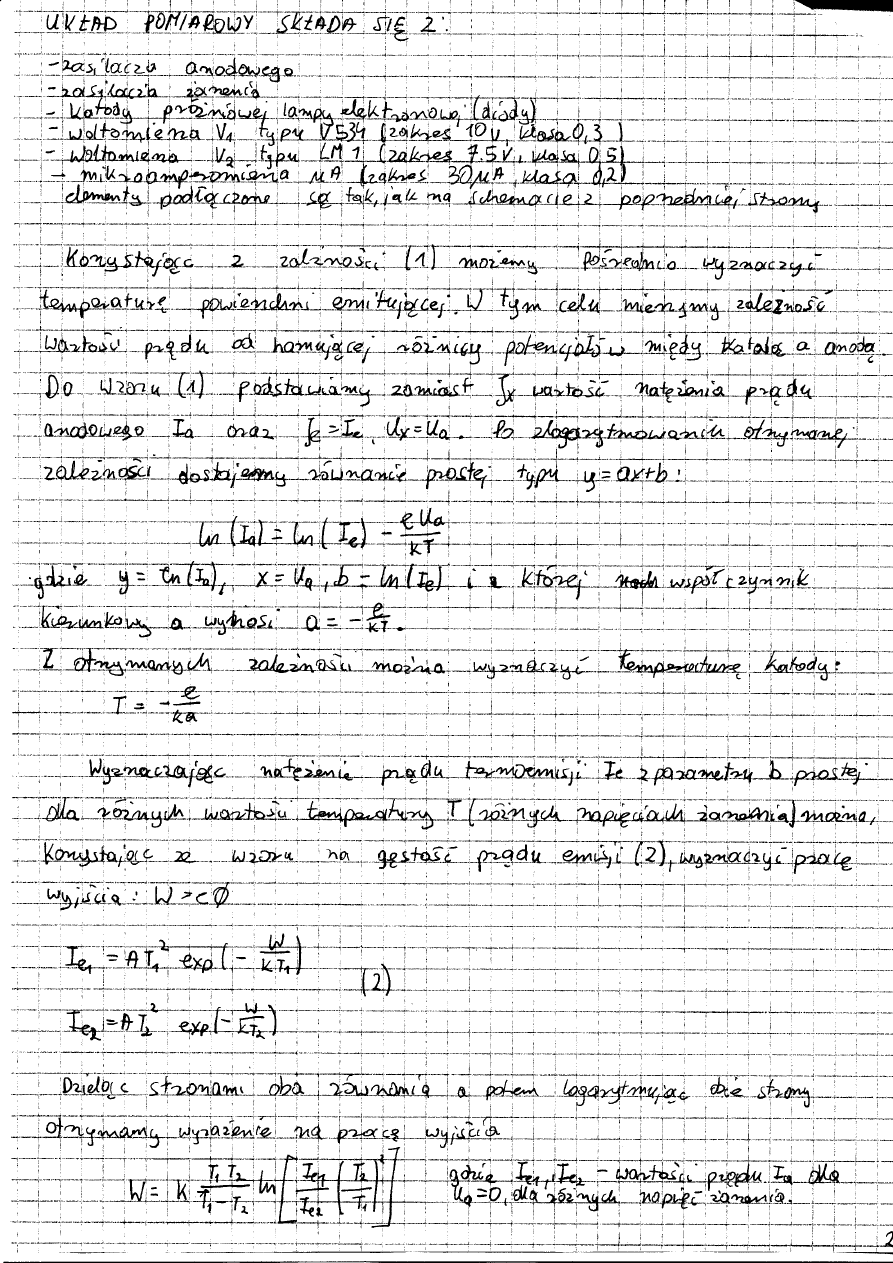 UKŁAD POMIAROWY SKŁADA SIĘ Z:
- zasilacza anodowego
- zasilacza żarzenia
- katody próżniowej lampy elektronowej (diody)
- woltomierza V₁ typu V534 (zakres 10V, klasa 0,3)
- woltomierza V₂ typu LM1 (zakres 7.5V, klasa 0,5)
- mikroamperomierza μA (zakres 30μA, klasa 0,2)
elementy podłączone są tak, jak na schemacie z poprzedniej strony
Korzystając z zależności (1) możemy pośrednio wyznaczyć
temperaturę powierzchni emitującej. W tym celu mierzymy zależność
wartości prądu od hamującej różnicy potencjałów między katodą a anodą.
Do wzoru (1) podstawiamy zamiast Jx wartość natężenia prądu
anodowego Ia oraz Je=Ie, Ux=Ua. Po zlogarytmowaniu otrzymanej
zależności dostajemy równanie prostej typu y=ax+b:
ln(Ia) = ln(Ie) - eUa/kT
gdzie y = ln(Ia), x = Ua, b = ln(Ie) i której współczynnik
kierunkowy a wynosi a = - e/kT.
Z otrzymanych zależności można wyznaczyć temperaturę katody:
T = - e/ka
Wyznaczając natężenie prądu termoemisji Ie z parametru b prostej
dla różnych wartości temperatury T (różnych napięciach żarzenia) można,
korzystając ze wzoru na gęstość prądu emisji (2), wyznaczyć pracę
wyjścia: W = eØ
Ie₁ = AT₁² exp(- W/kT₁)
(2)
Ie₂ = AT₂² exp(- W/kT₂)
Dzieląc stronami oba równania a potem logarytmując obie strony
otrzymamy wyrażenie na pracę wyjścia
W = k T₁T₂/(T₁-T₂) ln[Ie₁/Ie₂ (T₂/T₁)²] gdzie Ie₁, Ie₂ - wartości prądu Ia dla
Ua=0, dla różnych napięć żarzenia.
2